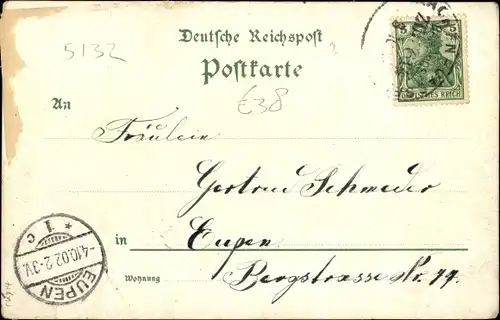 5132
Deutsche Reichspost
Postkarte
€38
5 5
DEUTSCHES REICH
AACHEN
An
Fräulein
Gertrud Schmeder
in Eupen
Wohnung Bergstrasse Nr. 44.
* 1 c
-4.10.02.2-3V.
EUPEN